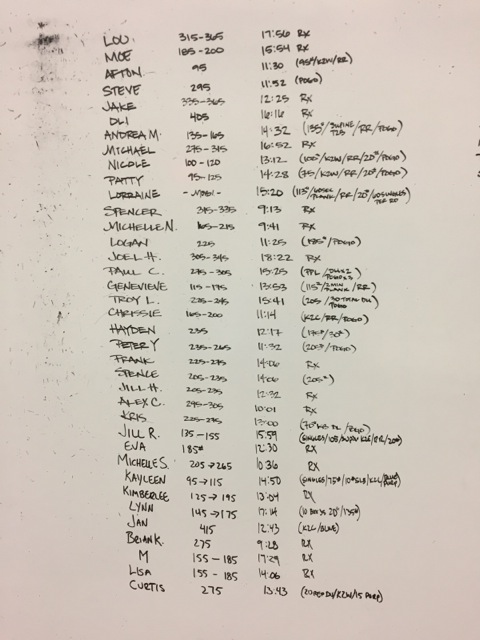 LOU 315-365 17:56 RX
MOE 185-200 15:54 RX
AFTON 95 11:30 (95#/K2W/RR)
STEVE 295 11:52 (POGO)
JAKE 335-365 12:25 RX
DLI 405 16:16 RX
ANDREA M. 135-165 14:32 (135#/SUPINE T2B/RR/POGO)
MICHAEL 275-315 16:52 RX
NICOLE 100-120 13:12 (100#/K2W/RR/20#/POGO)
PATTY 95-125 14:28 (75/K2W/RR/20#/POGO)
LORRAINE 15:20 (113#/60SEC PLANK/RR/20#/60SINGLES
SPENCER 315-335 9:13 RX
MICHELLE N. 165-215 9:41 RX
LOGAN 225 11:25 (135#/POGO)
JOEL H. 305-345 18:22 RX
PAUL C. 275-305 15:25
GENEVIEVE 115-175 13:53 (115#/2MIN PLANK/RR)
TROY L. 225-245 15:41
CHRISSIE 165-200 11:14 (K2C/RR/POGO)
HAYDEN 235 12:17
PETER Y 235-265 11:32 (205#/POGO)
FRANK 225-275 14:06 RX
SPENCE 205-235 14:06 (205#)
JILL H. 205-235 12:32 RX
ALEX C. 295-305 10:01 RX
KRIS 225-275 13:00
JILL R. 135-155 15:59
EVA 185# 12:30 RX
MICHELLE S. 205→265 10:36 RX
KAYLEEN 95→115 14:50
KIMBERLEE 125→195 13:04 RX
LYNN 145→175 17:14
JAN 415 12:43 (K2C/BLUE)
BRIAN K. 275 9:28 RX
M 155-185 17:29 RX
LISA 155-185 14:06 RX
CURTIS 275 13:43